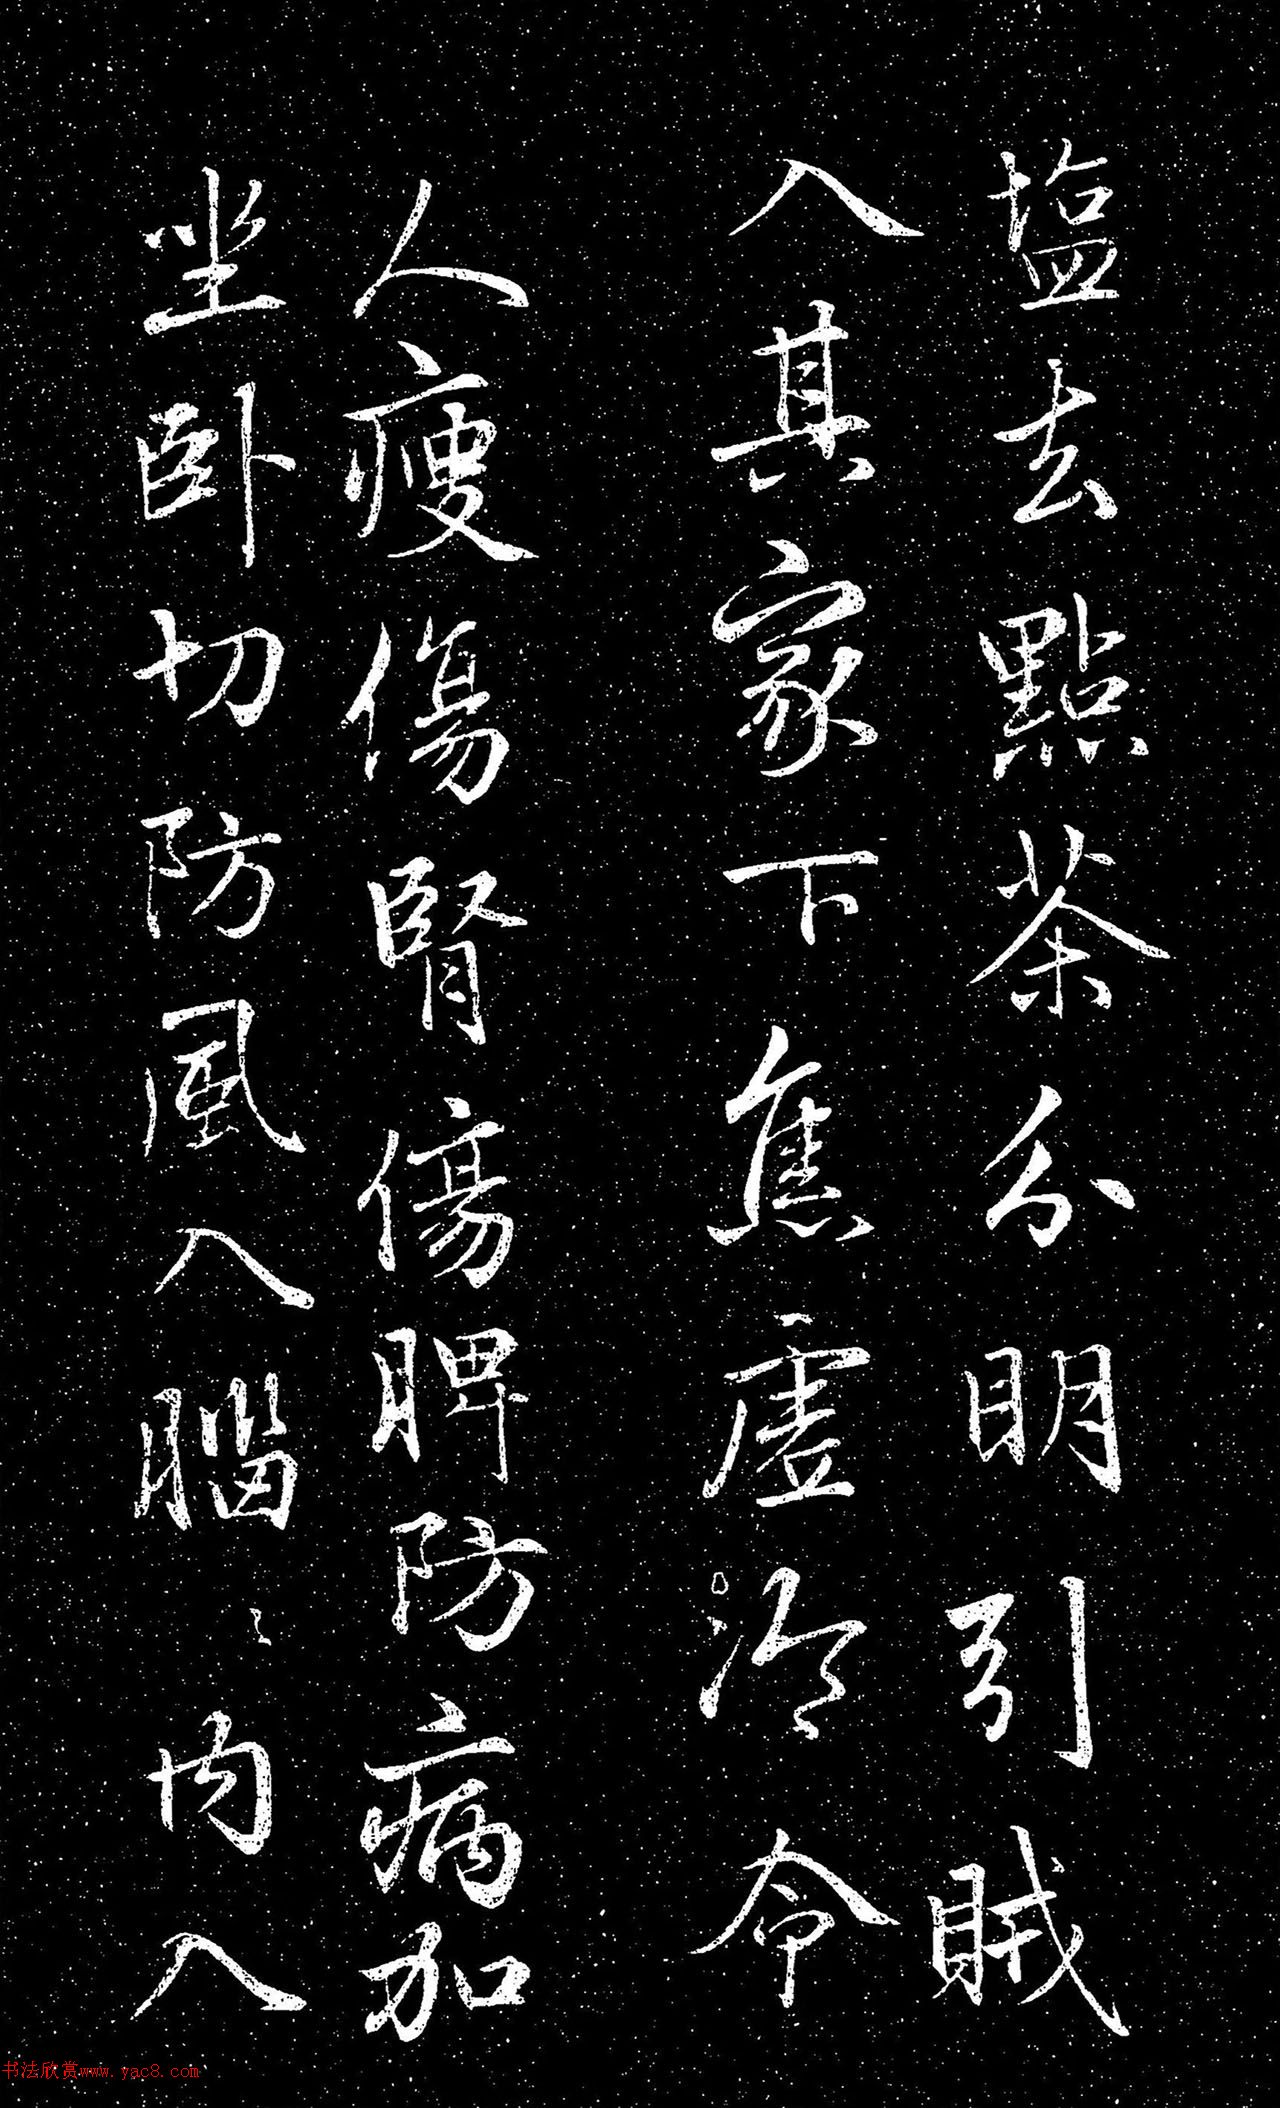 塩去點茶分明引賊
入其家下焦虛冷令
人瘦傷腎傷脾防病加
坐卧切防風入腦〻內入
书法欣赏www.yac8.com